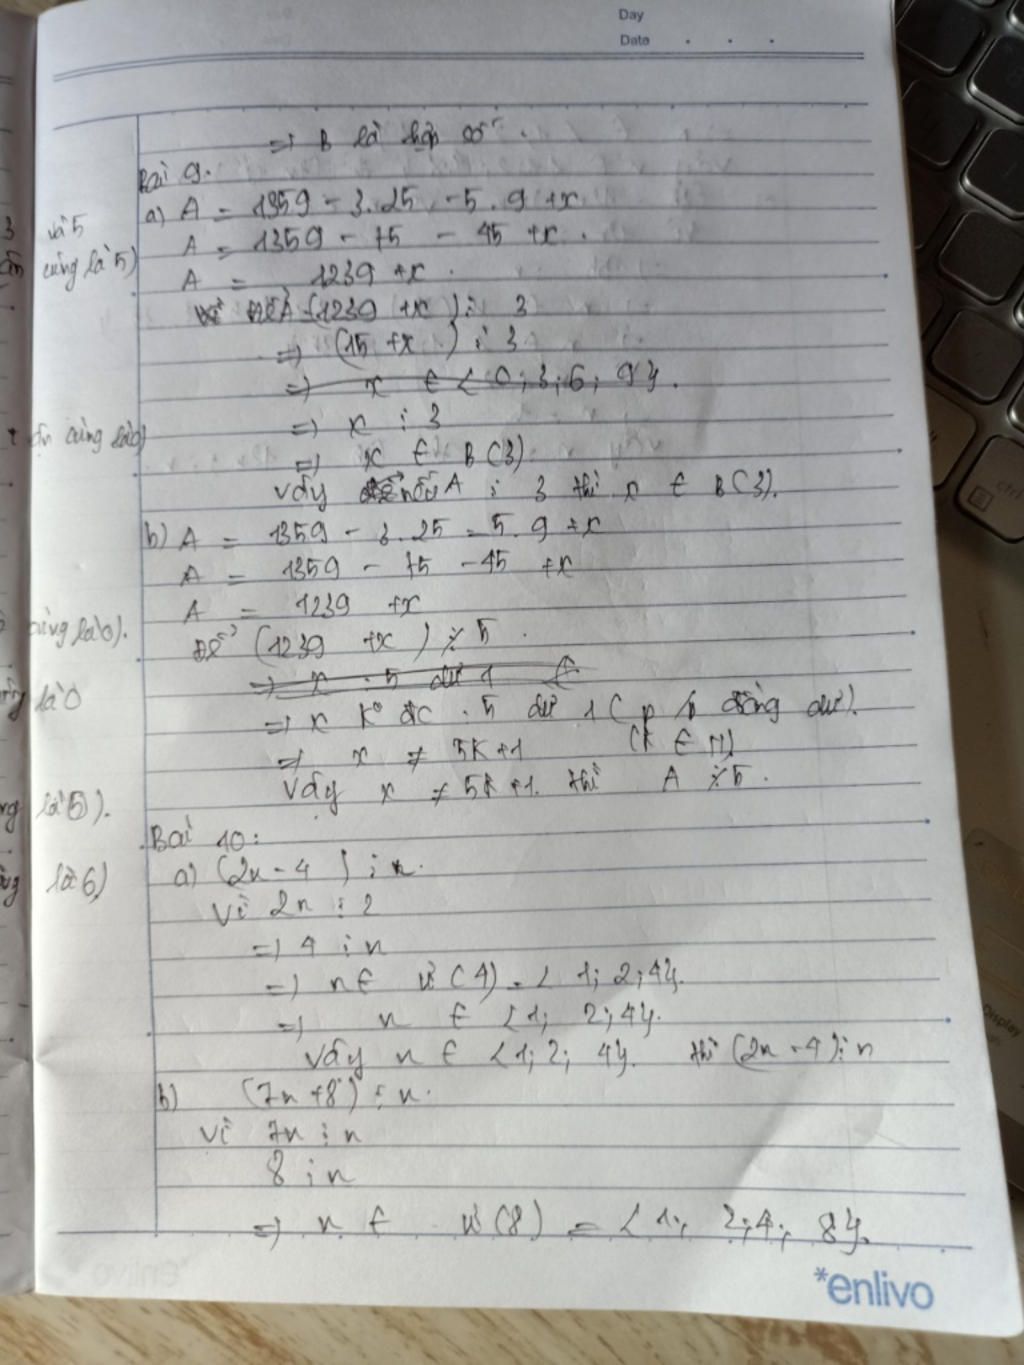 Day
Date . . .
=> B là hợp số.
Bài 9.
a) A = 1359 - 3.25 - 5.9 +x
A = 1359 - 75 - 45 +x.
A = 1239 +x.
Để A (1239 +x) ⋮ 3
=> (15 +x) ⋮ 3
=> x ∈ {0; 3; 6; 9}.
=> x ⋮ 3
=> x ∈ B(3)
Vậy nếu A ⋮ 3 thì x ∈ B(3).
b) A = 1359 - 3.25 - 5.9 +x
A = 1359 - 75 - 45 +x
A = 1239 +x
Để (1239 +x) ⋮̸ 5.
=> x : 5 dư 1
=> x k° đc : 5 dư 1 ( đồng dư).
=> x ≠ 5k+1 (k ∈ N)
Vậy x ≠ 5k+1. thì A ⋮̸ 5.
Bài 10:
a) (2n - 4) ⋮ n.
Vì 2n ⋮ 2
=> 4 ⋮ n
=> n ∈ Ư(4) = {1; 2; 4}.
=> n ∈ {1; 2; 4}.
Vậy n ∈ {1; 2; 4}. thì (2n - 4) ⋮ n
b) (7n +8) ⋮ n.
Vì 7n ⋮ n
8 ⋮ n
=> n ∈ Ư(8) = {1; 2; 4; 8}.
và 5
cùng là 5)
cùng là 0)
cùng là 0).
là 0
là 5).
là 6)
*enlivo
ctrl